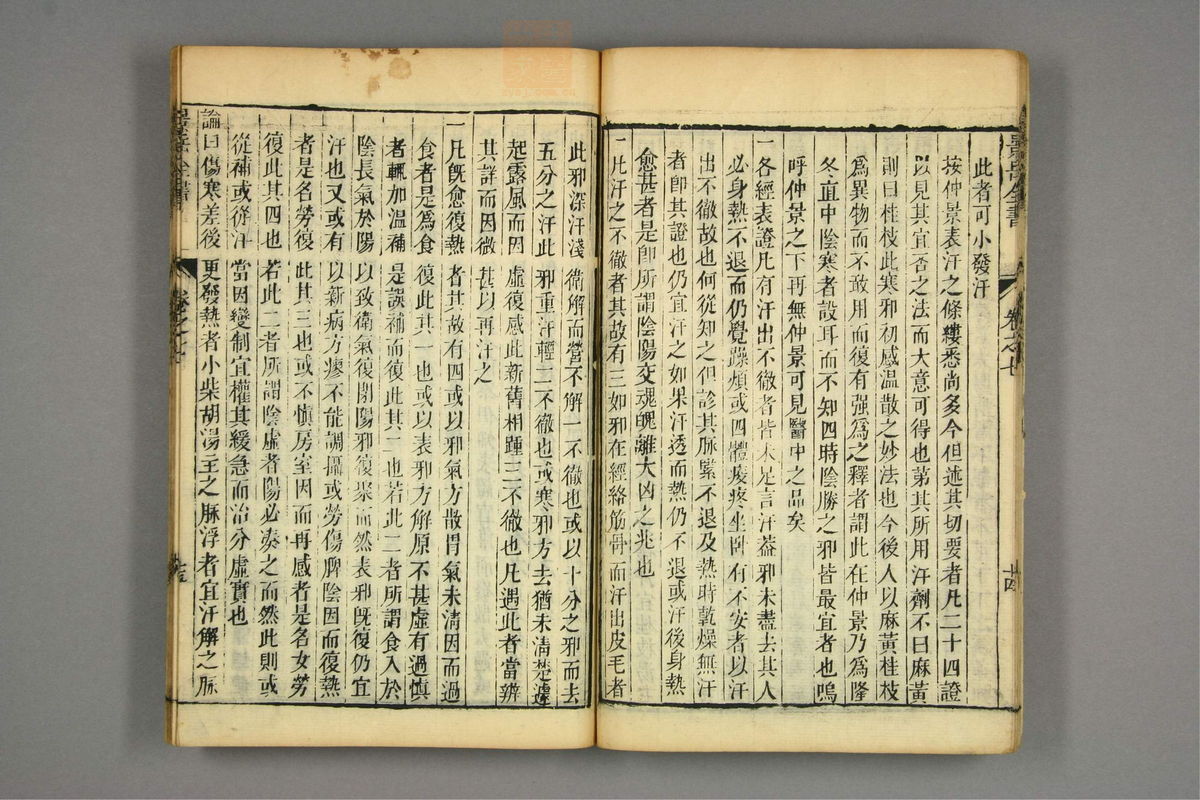 景岳全書
卷之七
十四
此者可小發汗
按仲景表汗之條縷悉尚多今但述其切要者凡二十四證
以見其宜否之法而大意可得也第其所用汗劑不曰麻黃
則曰桂枝此寒邪初感溫散之妙法也今後人以麻黃桂枝
爲異物而不敢用而復有强爲之釋者謂此在仲景乃爲隆
冬直中陰寒者設耳而不知四時陰勝之邪皆最宜者也嗚
呼仲景之下再無仲景可見醫中之品矣
一各經表證凡有汗出不徹者皆未足言汗葢邪未盡去其人
必身熱不退而仍覺躁煩或四體痠疼坐卧有不安者以汗
出不徹故也何從知之但診其脉緊不退及熱時乾燥無汗
者卽其證也仍宜汗之如果汗透而熱仍不退或汗後身熱
愈甚者是卽所謂陰陽交魂魄離大凶之兆也
一凡汗之不徹者其故有三如邪在經絡筋骨而汗出皮毛者
此邪深汗淺衛解而營不解一不徹也或以十分之邪而去
五分之汗此邪重汗輕二不徹也或寒邪方去猶未清楚遽
起露風而因虛復感此新舊相踵三不徹也凡遇此者當辨
其詳而因微甚以再汗之
一凡既愈復熱者其故有四或以邪氣方散胃氣未清因而過
食者是爲食復此其一也或以表邪方解原不甚虛有過慎
者輒加溫補是誤補而復此其二也若此二者所謂食入於
陰長氣於陽以致衛氣復閉陽邪復聚而然表邪旣復仍宜
汗也又或有以新病方瘳不能調攝或勞傷脾陰因而復熱
者是名勞復此其三也或不慎房室因而再感者是名女勞
復此其四也若此二者所謂陰虛者陽必湊之而然此則或
從補或從汗當因變制宜權其緩急而治分虛實也
論曰傷寒差後更發熱者小柴胡湯主之脉浮者宜汗解之脉
景岳全書
卷之七
十五